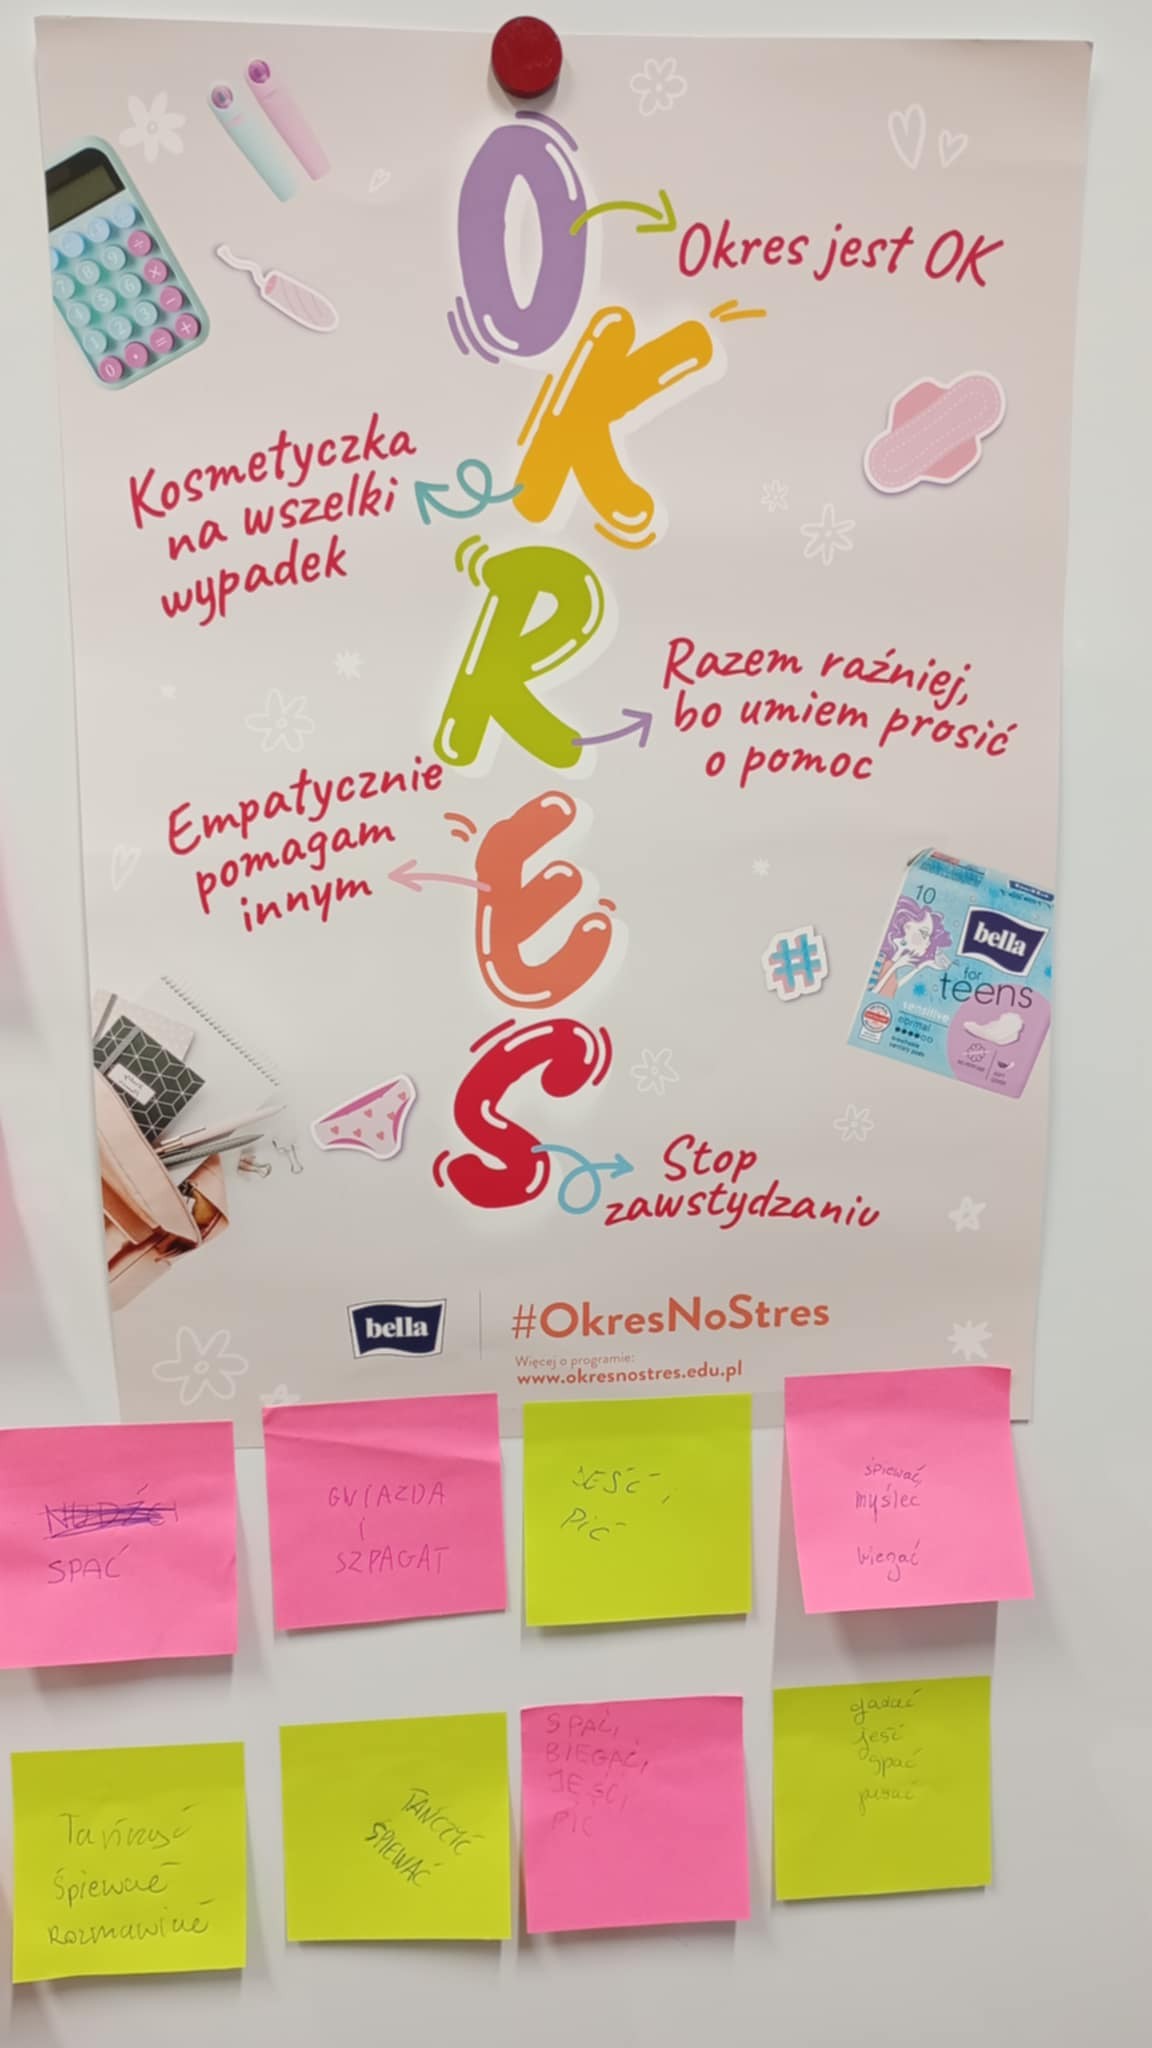 OKRES
Okres jest OK
Kosmetyczka
na wszelki
wypadek
Razem raźniej,
bo umiem prosić
o pomoc
Empatycznie
pomagam
innym
10
bella
for
teens
sensitive
normal
Stop
zawstydzaniu
bella
#OkresNoStres
Więcej o programie:
www.okresnostres.edu.pl
SPAĆ
GWIAZDA
I
SZPAGAT
JEŚĆ,
PIĆ
śpiewać,
myśleć
biegać
Tańczyć
Śpiewać
Rozmawiać
TAŃCZYĆ
ŚPIEWAĆ
SPAĆ,
BIEGAĆ,
JEŚĆ,
PIĆ
gadać
jeść
spać
pisać